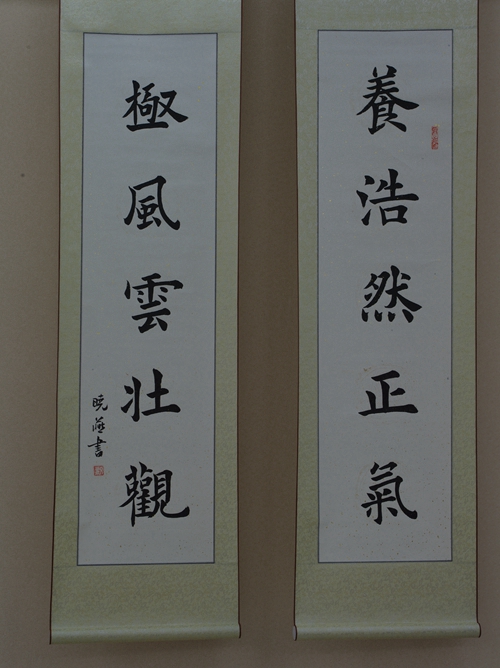 養浩然正氣
極風雲壯觀
曉燕書